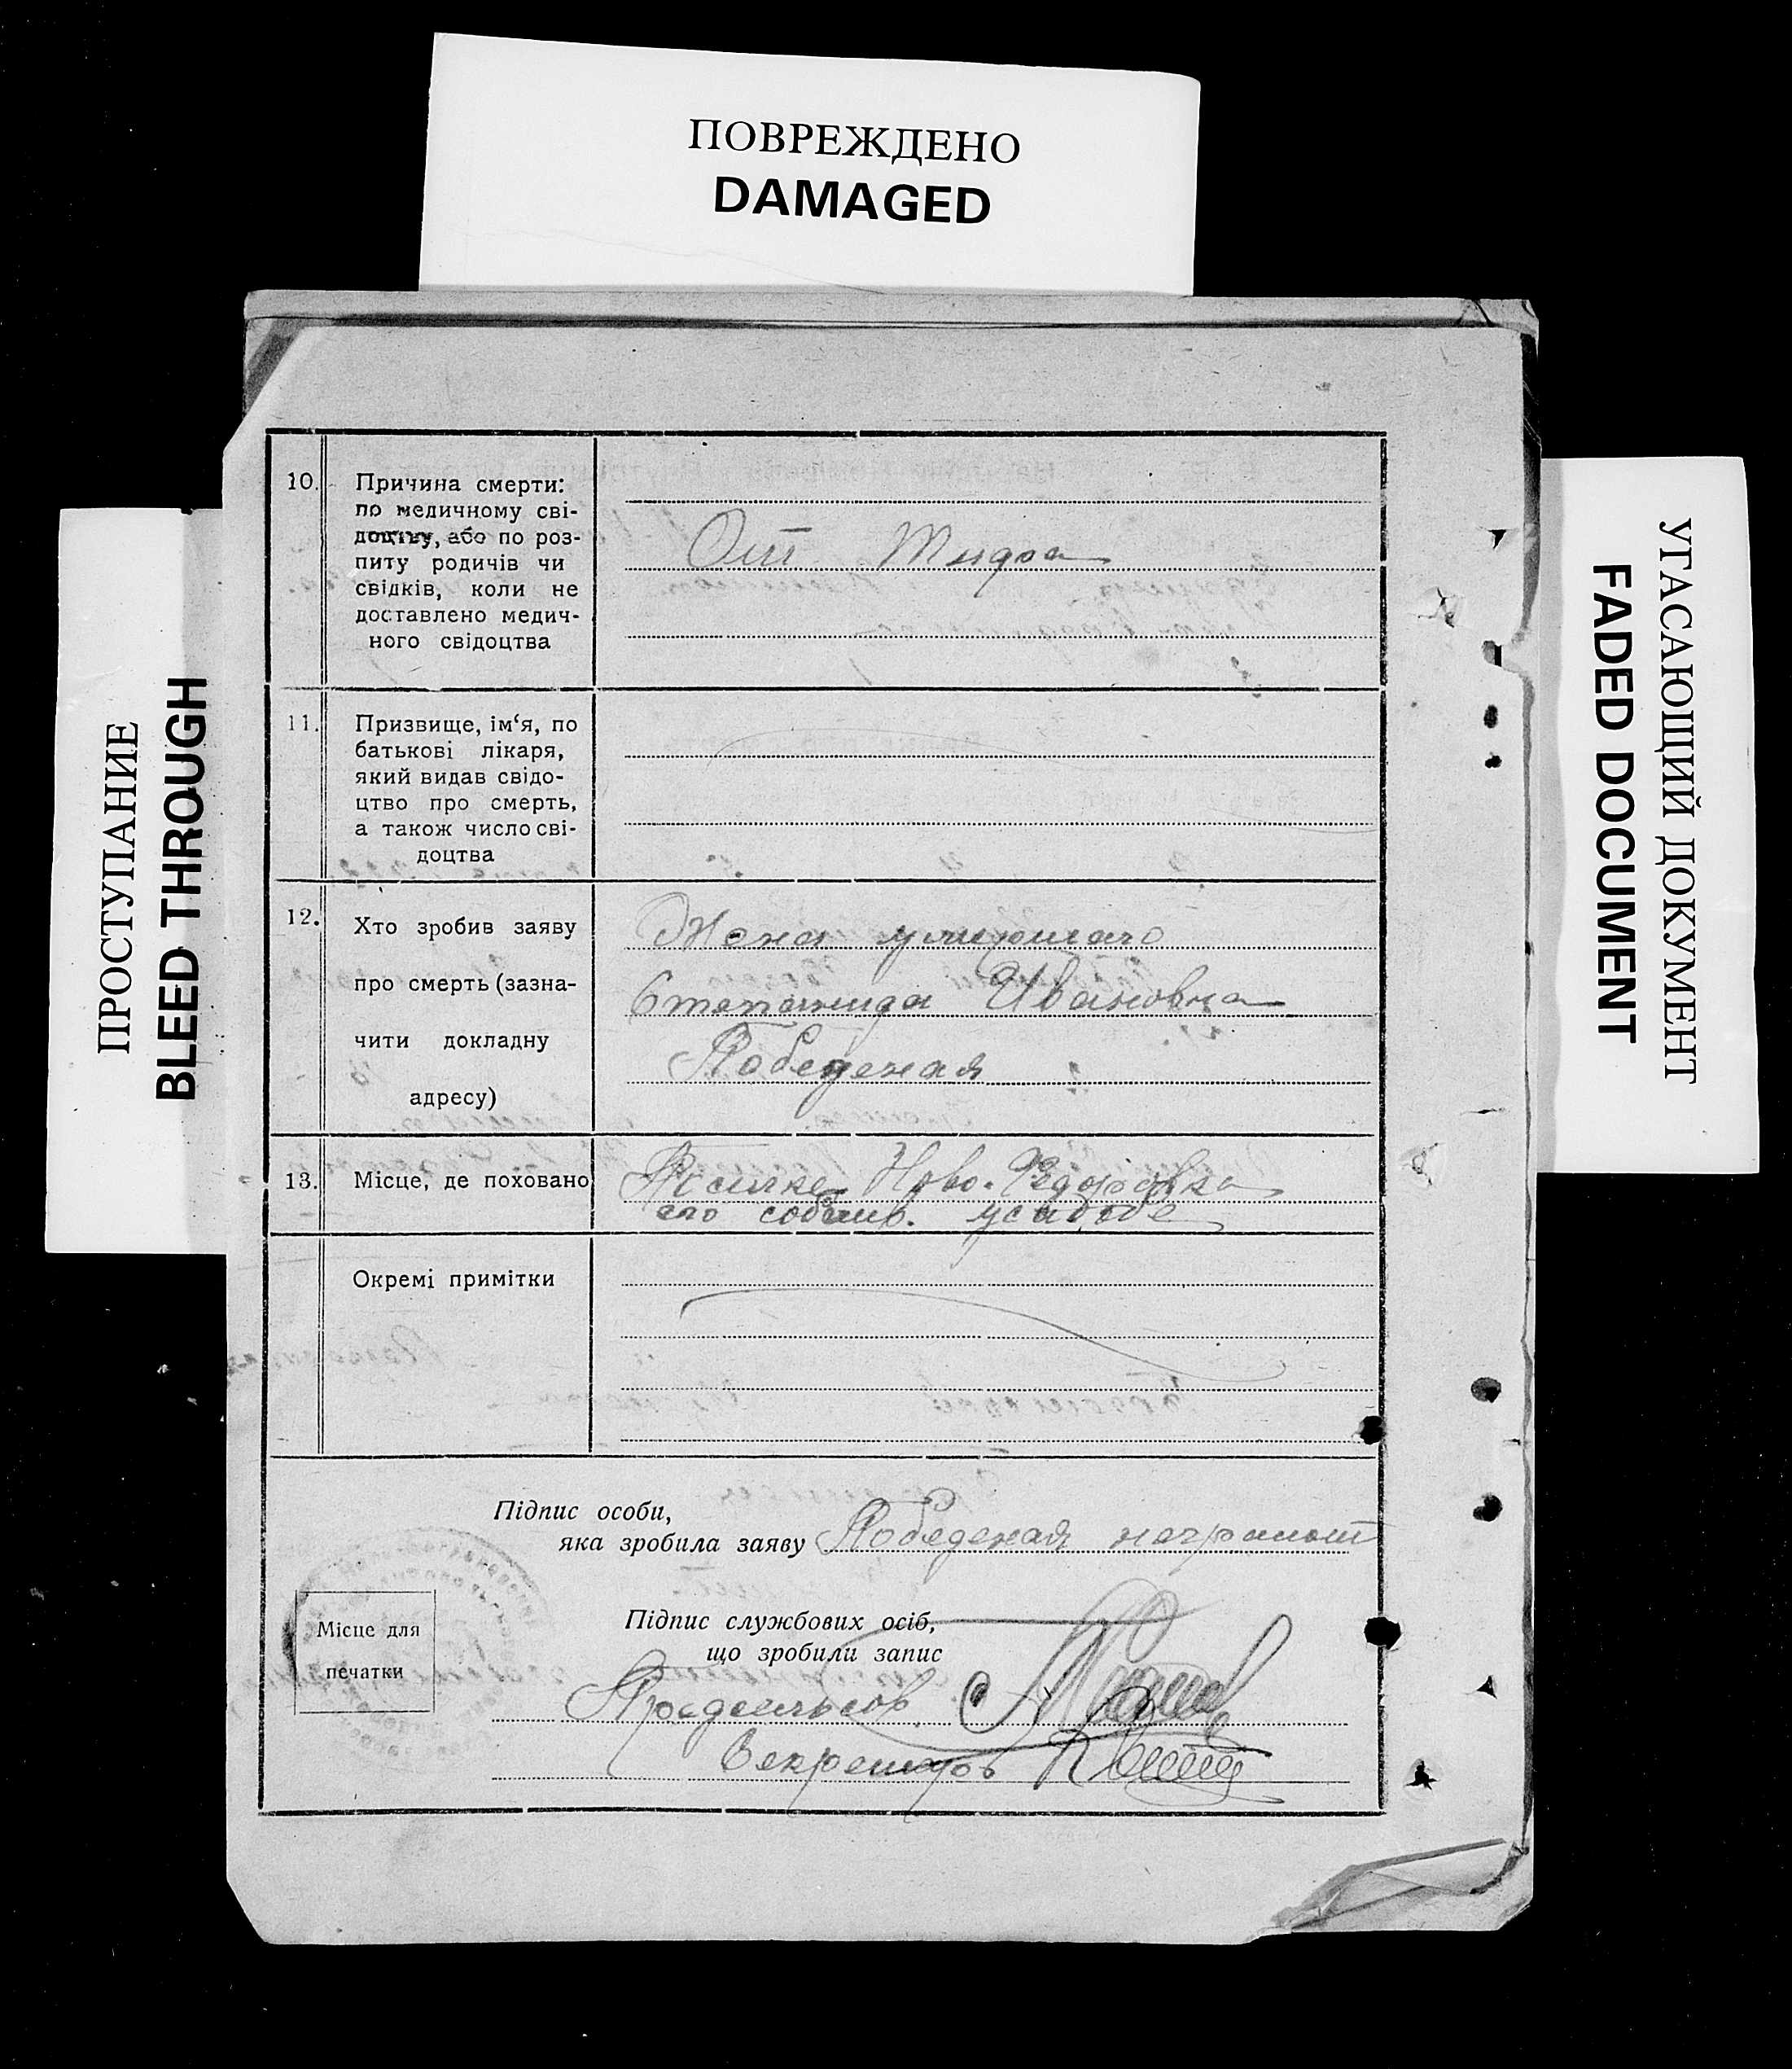 ПОВРЕЖДЕНО
DAMAGED
ПРОСТУПАНИЕ
BLEED THROUGH
УГАСАЮЩИЙ ДОКУМЕНТ
FADED DOCUMENT
10. Причина смерти:
по медичному сві-
доцтву, або по роз-
питу родичів чи
свідків, коли не
доставлено медич-
ного свідоцтва
От Тифа
11. Призвище, ім‘я, по
батькові лікаря,
який видав свідо-
цтво про смерть,
а також число сві-
доцтва
12. Хто зробив заяву
про смерть (зазна-
чити докладну
адресу)
Жена умершаго
Степанида Ивановна
Победеная
13. Місце, де поховано
Поселке Ново-Федоровка
его собств. усадьбе
Окремі примітки
Підпис особи,
яка зробила заяву Победеная неграмот
Місце для
печатки
Підпис службових осіб,
що зробили запис
Предсельсов.
Секретарь